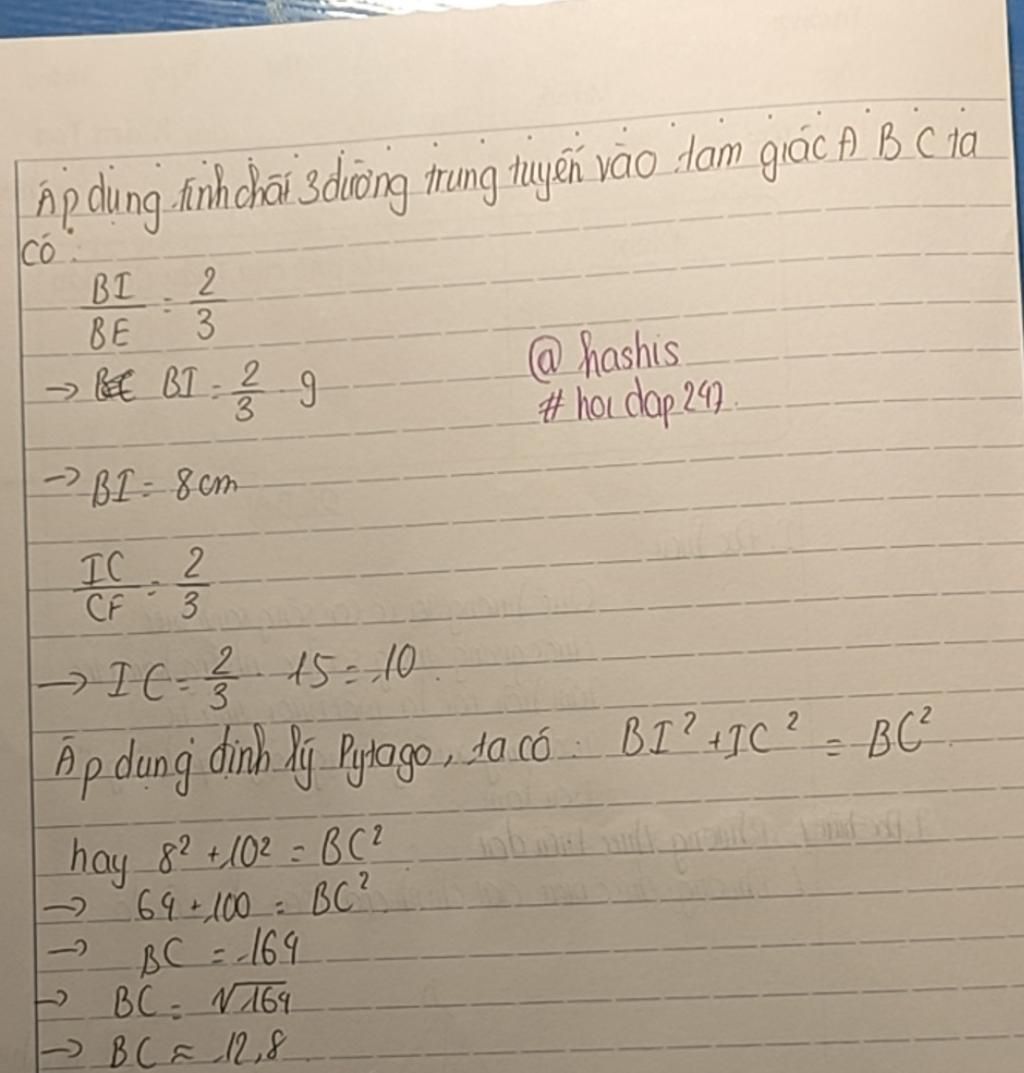 Áp dụng tính chất 3 đường trung tuyến vào tam giác A B C ta
có:
BI/BE = 2/3
→ BI = 2/3 . 9
@ hashis
# hoi dap 247
→ BI = 8cm
IC/CF = 2/3
→ IC = 2/3 . 15 = 10
Áp dụng định lý Pytago, ta có: BI² + IC² = BC²
hay 8² + 10² = BC²
→ 64 + 100 = BC²
→ BC = 164
→ BC = √164
→ BC ≈ 12,8